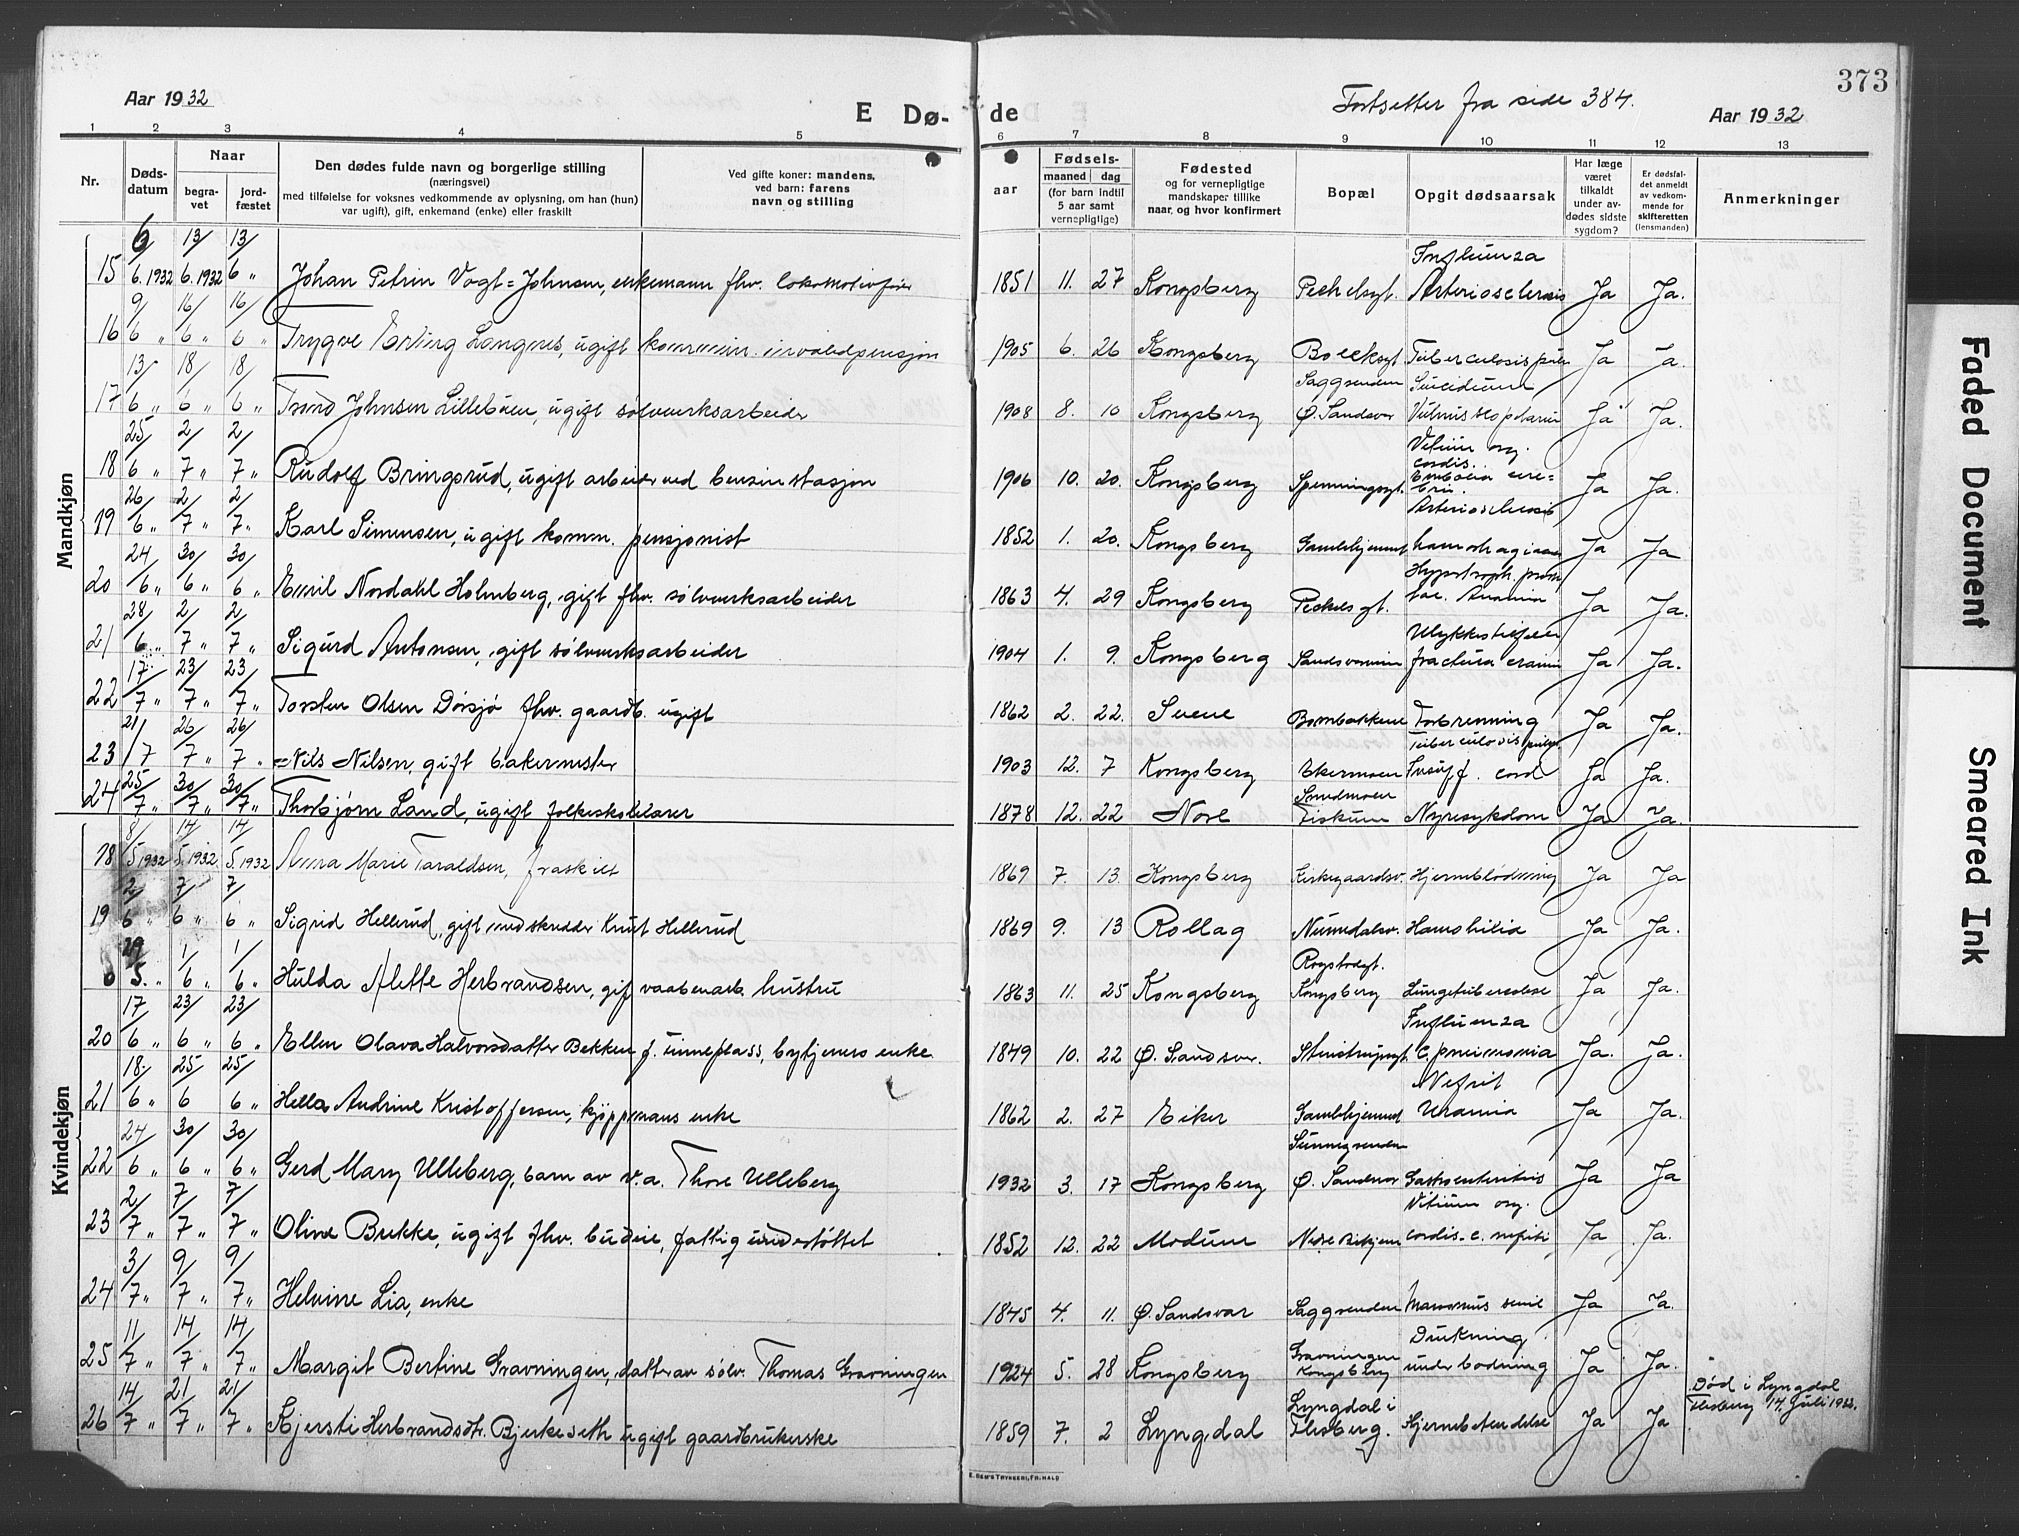 373
Aar 1932
E Dø-
de
Fortsetter fra side 384.
Aar 1932
1 2 3 4 5 6 7 8 9 10 11 12 13
Nr.
Døds-
datum
Naar
begra-
vet
jord-
fæstet
Den dødes fulde navn og borgerlige stilling
(næringsvei)
med tilføielse for voksnes vedkommende av oplysning, om han (hun)
var ugift), gift, enkemand (enke) eller fraskilt
Ved gifte koner: mandens,
ved barn: farens
navn og stilling
aar
Fødsels-
maaned dag
(for barn indtil
5 aar samt
vernepligtige)
Fødested
og for vernepligtige
mandskaper tillike
naar, og hvor konfirmert
Bopæl
Opgit dødsaarsak
Har læge
været
tilkaldt
under av-
dødes sidste
sygdom?
Er dødsfal-
det anmeldt
av vedkom-
mende for
skifteretten
(lensmanden)
Anmerkninger
Mandkjøn
15 6/6.1932 13/6.1932 13/6 " Johan Petrin Vogt=Johnsen, enkemann fhv. lokomotivfører 1851 11. 27 Kongsberg Peckelsgt. Influenza Arteriosclerosis Ja Ja.
16 9/6 " 16/6 " 16/6 " Trygve Erling Langnes, ugift kommun. invalidpensjon 1905 6. 26 Kongsberg Tuberculosis pulm Ja Ja.
17 13/6 " 18/6 " 18/6 " Trond Johnsen Lillebuen, ugift sølvverksarbeider 1908 8. 10 Kongsberg Saggrenden Ø. Sandsvær Suicidium Ja Ja.
18 25/6 " 2/7 " 2/7 " Rudolf Bringsrud, ugift arbeider ved bensinstasjon 1906 10. 20. Kongsberg Spenningsgt. Vitium org. cordis. Embolia cere= bri. Ja Ja.
19 26/6 " 2/7 " 2/7 " Karl Simensen, ugift komm. pensjonist 1852 1. 20. Kongsberg Gamlehjemmet Arteriosclerosis Ja Ja
20 24/6 " 30/6 " 30/6 " Emil Nordahl Holmberg, gift fhv. sølvverksarbeider 1863 4. 29 Kongsberg Peckelsgt. Hypertroph. prosta tae. Anamia Ja Ja.
21 28/6 " 2/7 " 2/7 " Sigurd Antonsen, gift sølvverksarbeider 1904 1. 9. Kongsberg Ulykkestilfelle fractura cranii Ja Ja.
22 17/7 " 23/7 " 23/7 " Torsten Olsen Dørsjø fhv. gaardb. ugift 1862 2. 22. Svene Bombakkene Forbrenning Ja Ja.
23 21/7 26/7 " 26/7 " Nils Nilsen, gift bakermester 1903 12. 7 Kongsberg Ekermoen Tuberculosis pulm. Insuff. cord Ja Ja.
24 25/7 " 30/7 " 30/7 " Thorbjørn Land, ugift folkeskolelærer 1878 12. 22 Nore Smedmoen Fiskum Nyresykdom Ja Ja.
Kvindekjøn
18 8/5 1932 14/5. 1932 14/5. 1932 Anna Marie Taraldsen, fraskilt 1869 7. 13. Kongsberg Kirkegaardsv. Hjerneblødning Ja Ja
19 2/6 " 7/6 " 7/6 " Sigrid Hellerud, gift med skredder Knut Hellerud 1869 9. 13 Rollag Numedalsv. Hamophilia Ja Ja.
29/5. " 1/6 " 1/6 " Hulda Alette Herbrandsen, gift vaabenarb. hustru 1863 11. 25 Kongsberg Kongsberg Lungetuberculose Ja Ja.
20 17/6 " 23/6 " 23/6 " Ellen Olava Halvorsdatter Bekken f. unneplass, bytjeners enke 1849 10. 22 Ø. Sandsvær. Influenza c. pneumonia Ja. Ja.
21 18/6 " 25/6 25/6 " Hella Andrine Kristoffersen, kjøppmans enke 1862 2. 27 Eiker Gamlehjemmet Nefrit Uramia Ja Ja.
22 24/6 " 30/6 " 30/6 " Gerd Mary Ulleberg, barn av v.a. Thore Ulleberg 1932 3. 17 Kongsberg Sunnegrenden Ø. Sandsvær Gastroenteritis Ja Ja
23 2/7 " 7/7 " 7/7 " Oline Brekke, ugift fhv. budeie, fattigunderstøttet 1852 12. 22 Modum Vitium org. cordis. c. nefriti Ja Ja.
24 3/7 " 9/7 " 9/7 " Helvine Lia, enke 1845 4. 11. Ø. Sandsvær Saggrenden Marasmus senil Ja Ja.
25 11/7 " 14/7 " 14/7 " Margit Bertine Gravningen, datter av sølv. Thomas Gravningen 1924 5. 28 Kongsberg Gravningen Kongsberg Drukning under badning Ja Ja.
26 14/7 " 21/7 " 21/7 " Kjersti Herbrandsdtr. Bjerkeseth ugift gaardbrukerske 1859 7. 2 Lyngdal Lyngdal i Flesberg. Ja Ja Død i Lyngdal Flesberg 14. Juli 1932.
E. SEM'S TRYKKERI, FR.HALD
Faded Document
Smeared Ink